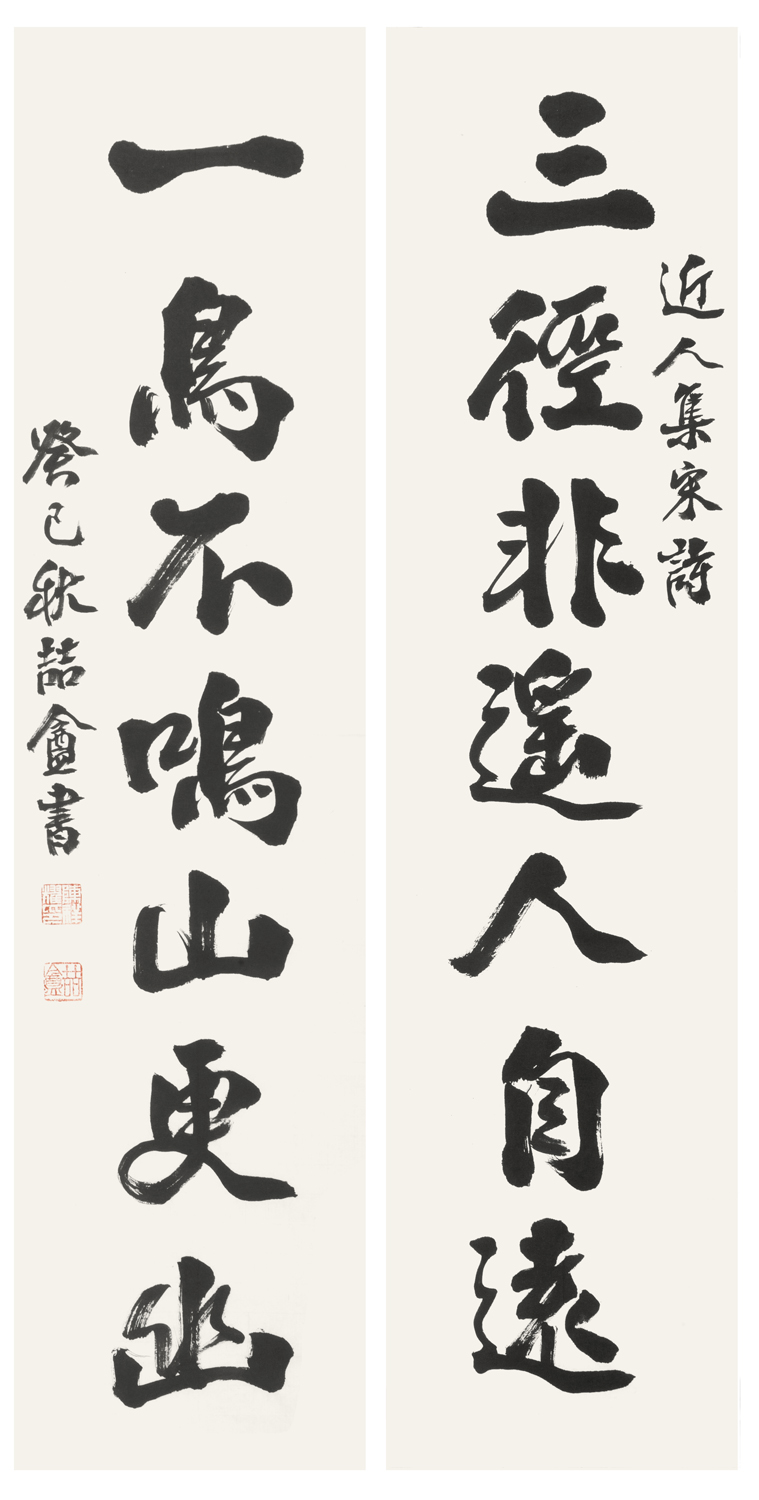 近人集宋詩
三徑非遙人自遠
一鳥不鳴山更幽
癸巳秋喆盦書
喆盦